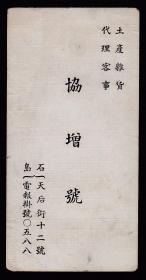 土產雜貨
代理客事
協增號
石(天后街十二號
島(電報掛號〇五八八